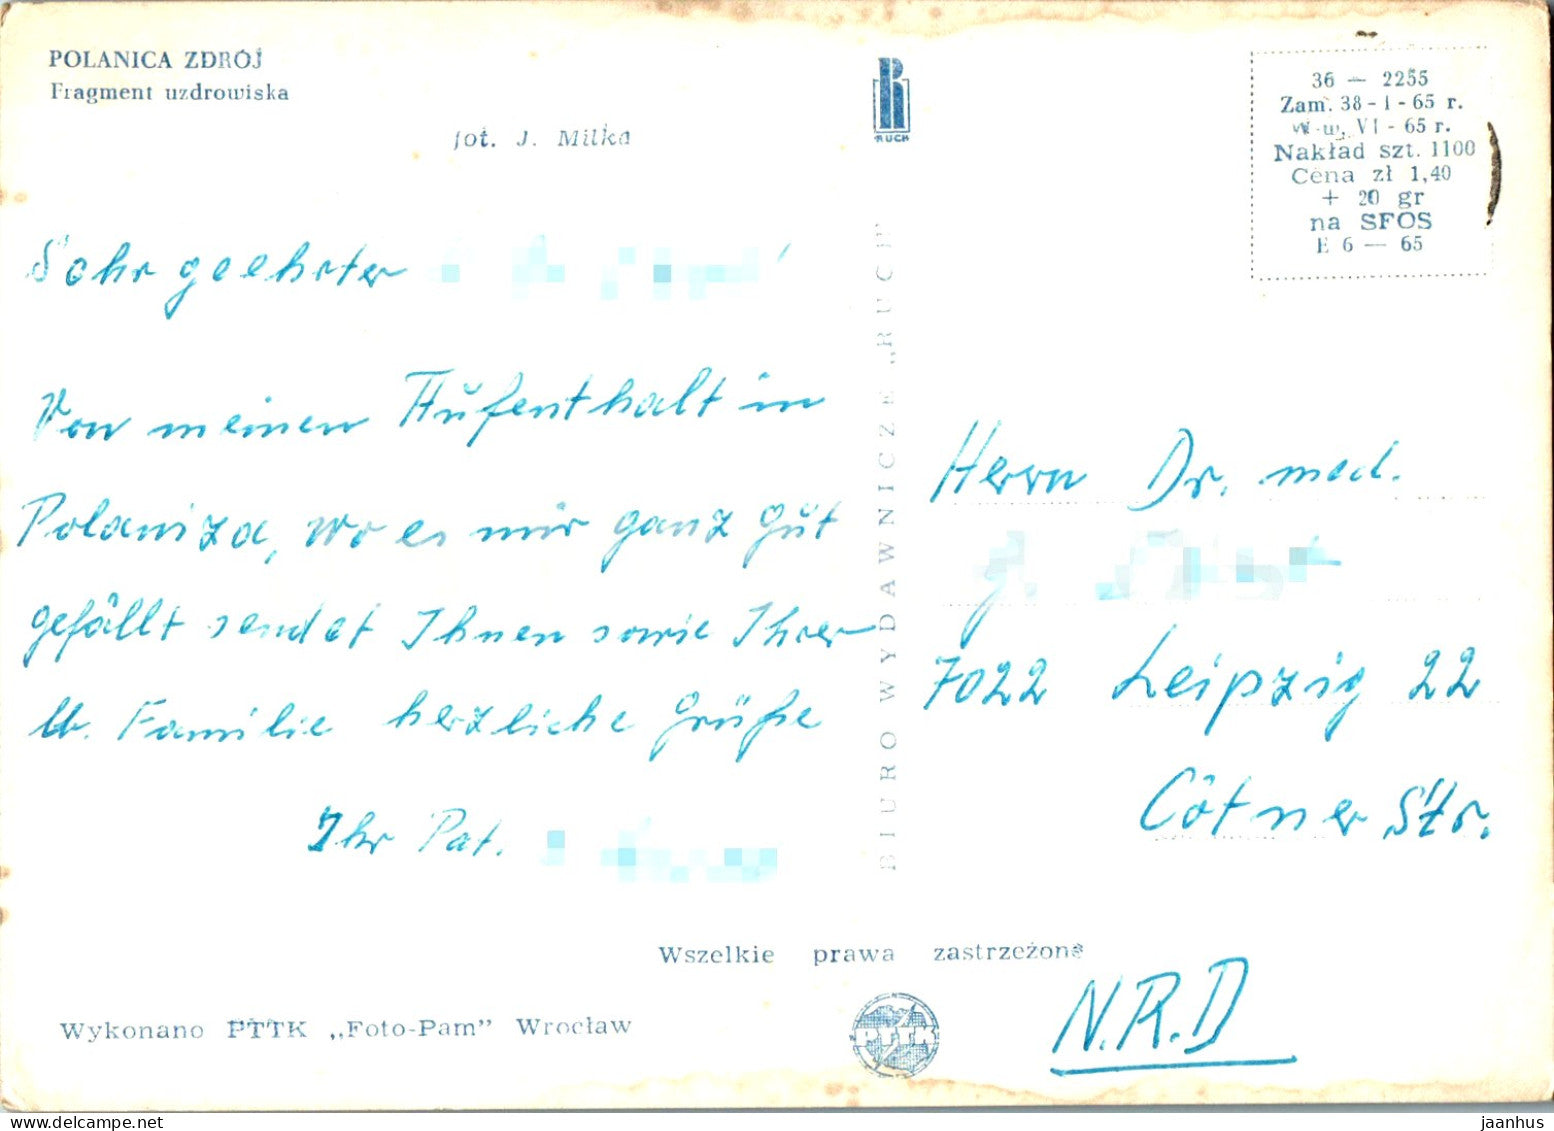 POLANICA ZDRÓJ
Fragment uzdrowiska
fot. J. Milka
RUCH
36 — 2255
Zam. 38 - I - 65 r.
VI - 65 r.
Nakład szt. 1100
Cena zł 1,40
+ 20 gr
na SFOS
E 6 — 65
Sehr geehrter
Von meinen Aufenthalt in
Polaniza, wo es mir ganz gut
gefällt sendet Ihnen sowie Ihrer
lb. Familie herzliche Grüße
Ihr Pat.
BIURO WYDAWNICZE „RUCH"
Herrn Dr. med.
7022 Leipzig 22
Cötner Str.
N.R.D
Wszelkie prawa zastrzeżone
Wykonano PTTK „Foto-Pam" Wrocław
PTTK
jaanhus